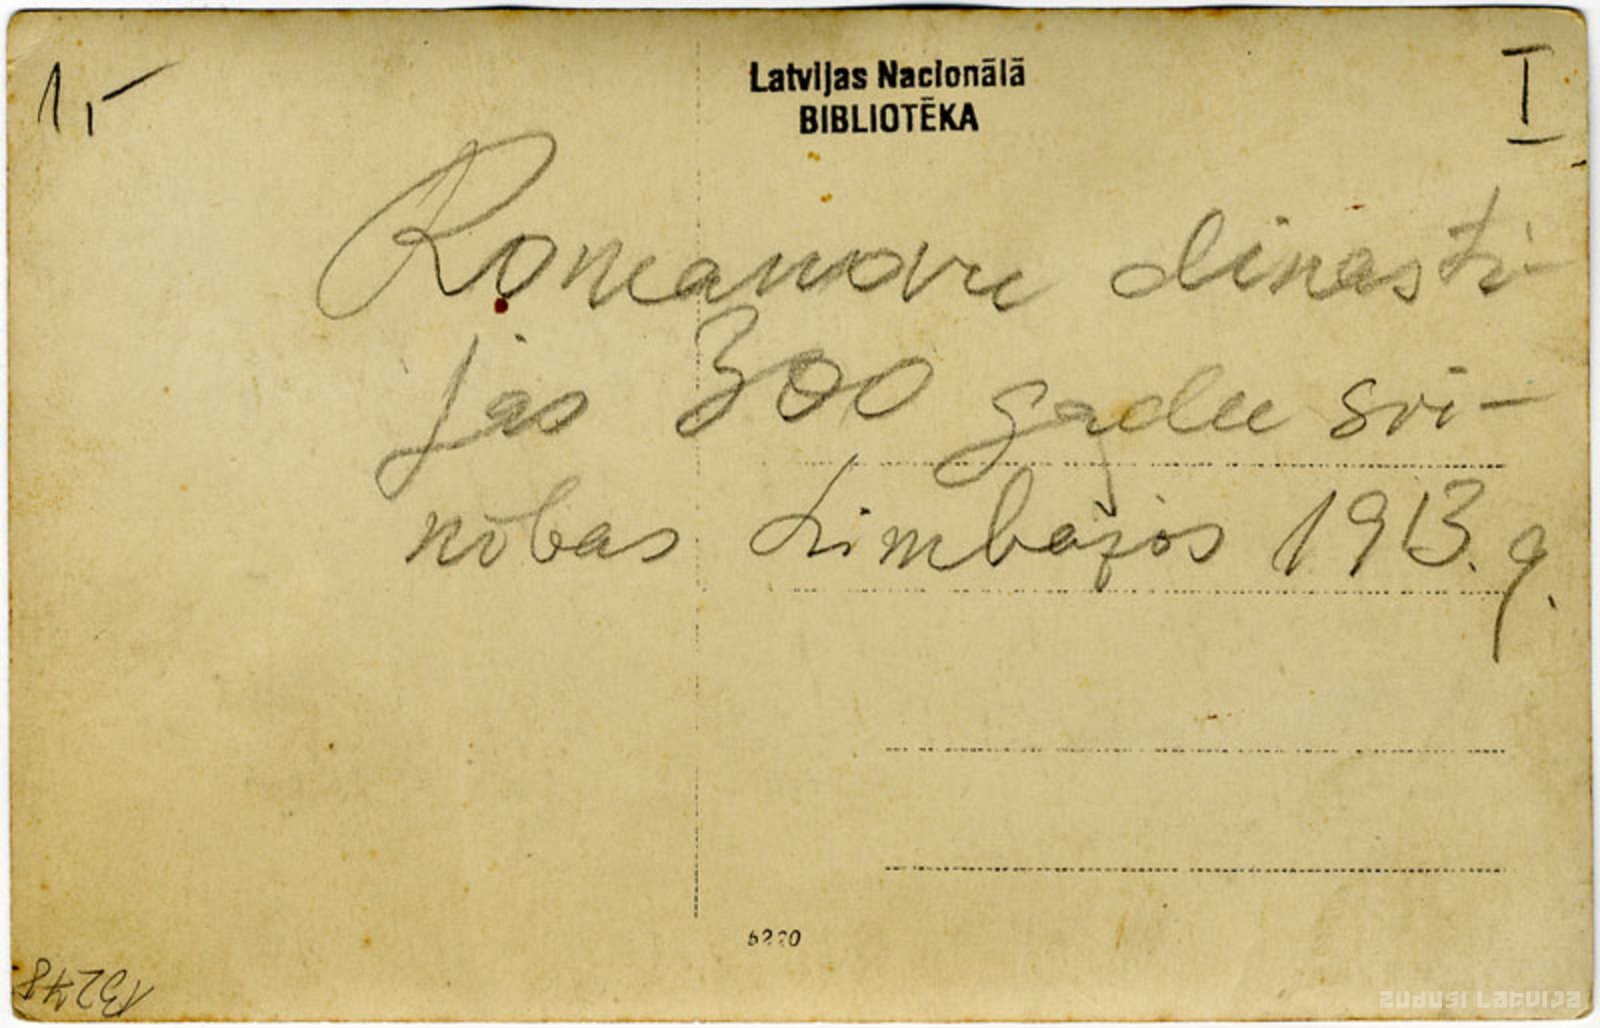 1,-
Latvijas Nacionālā
BIBLIOTĒKA
I
Romanovu dinasti-
jas 300 gadu svi-
nības Limbažos 1913. g.
6220
13278
ZUDUSI LATVIJA